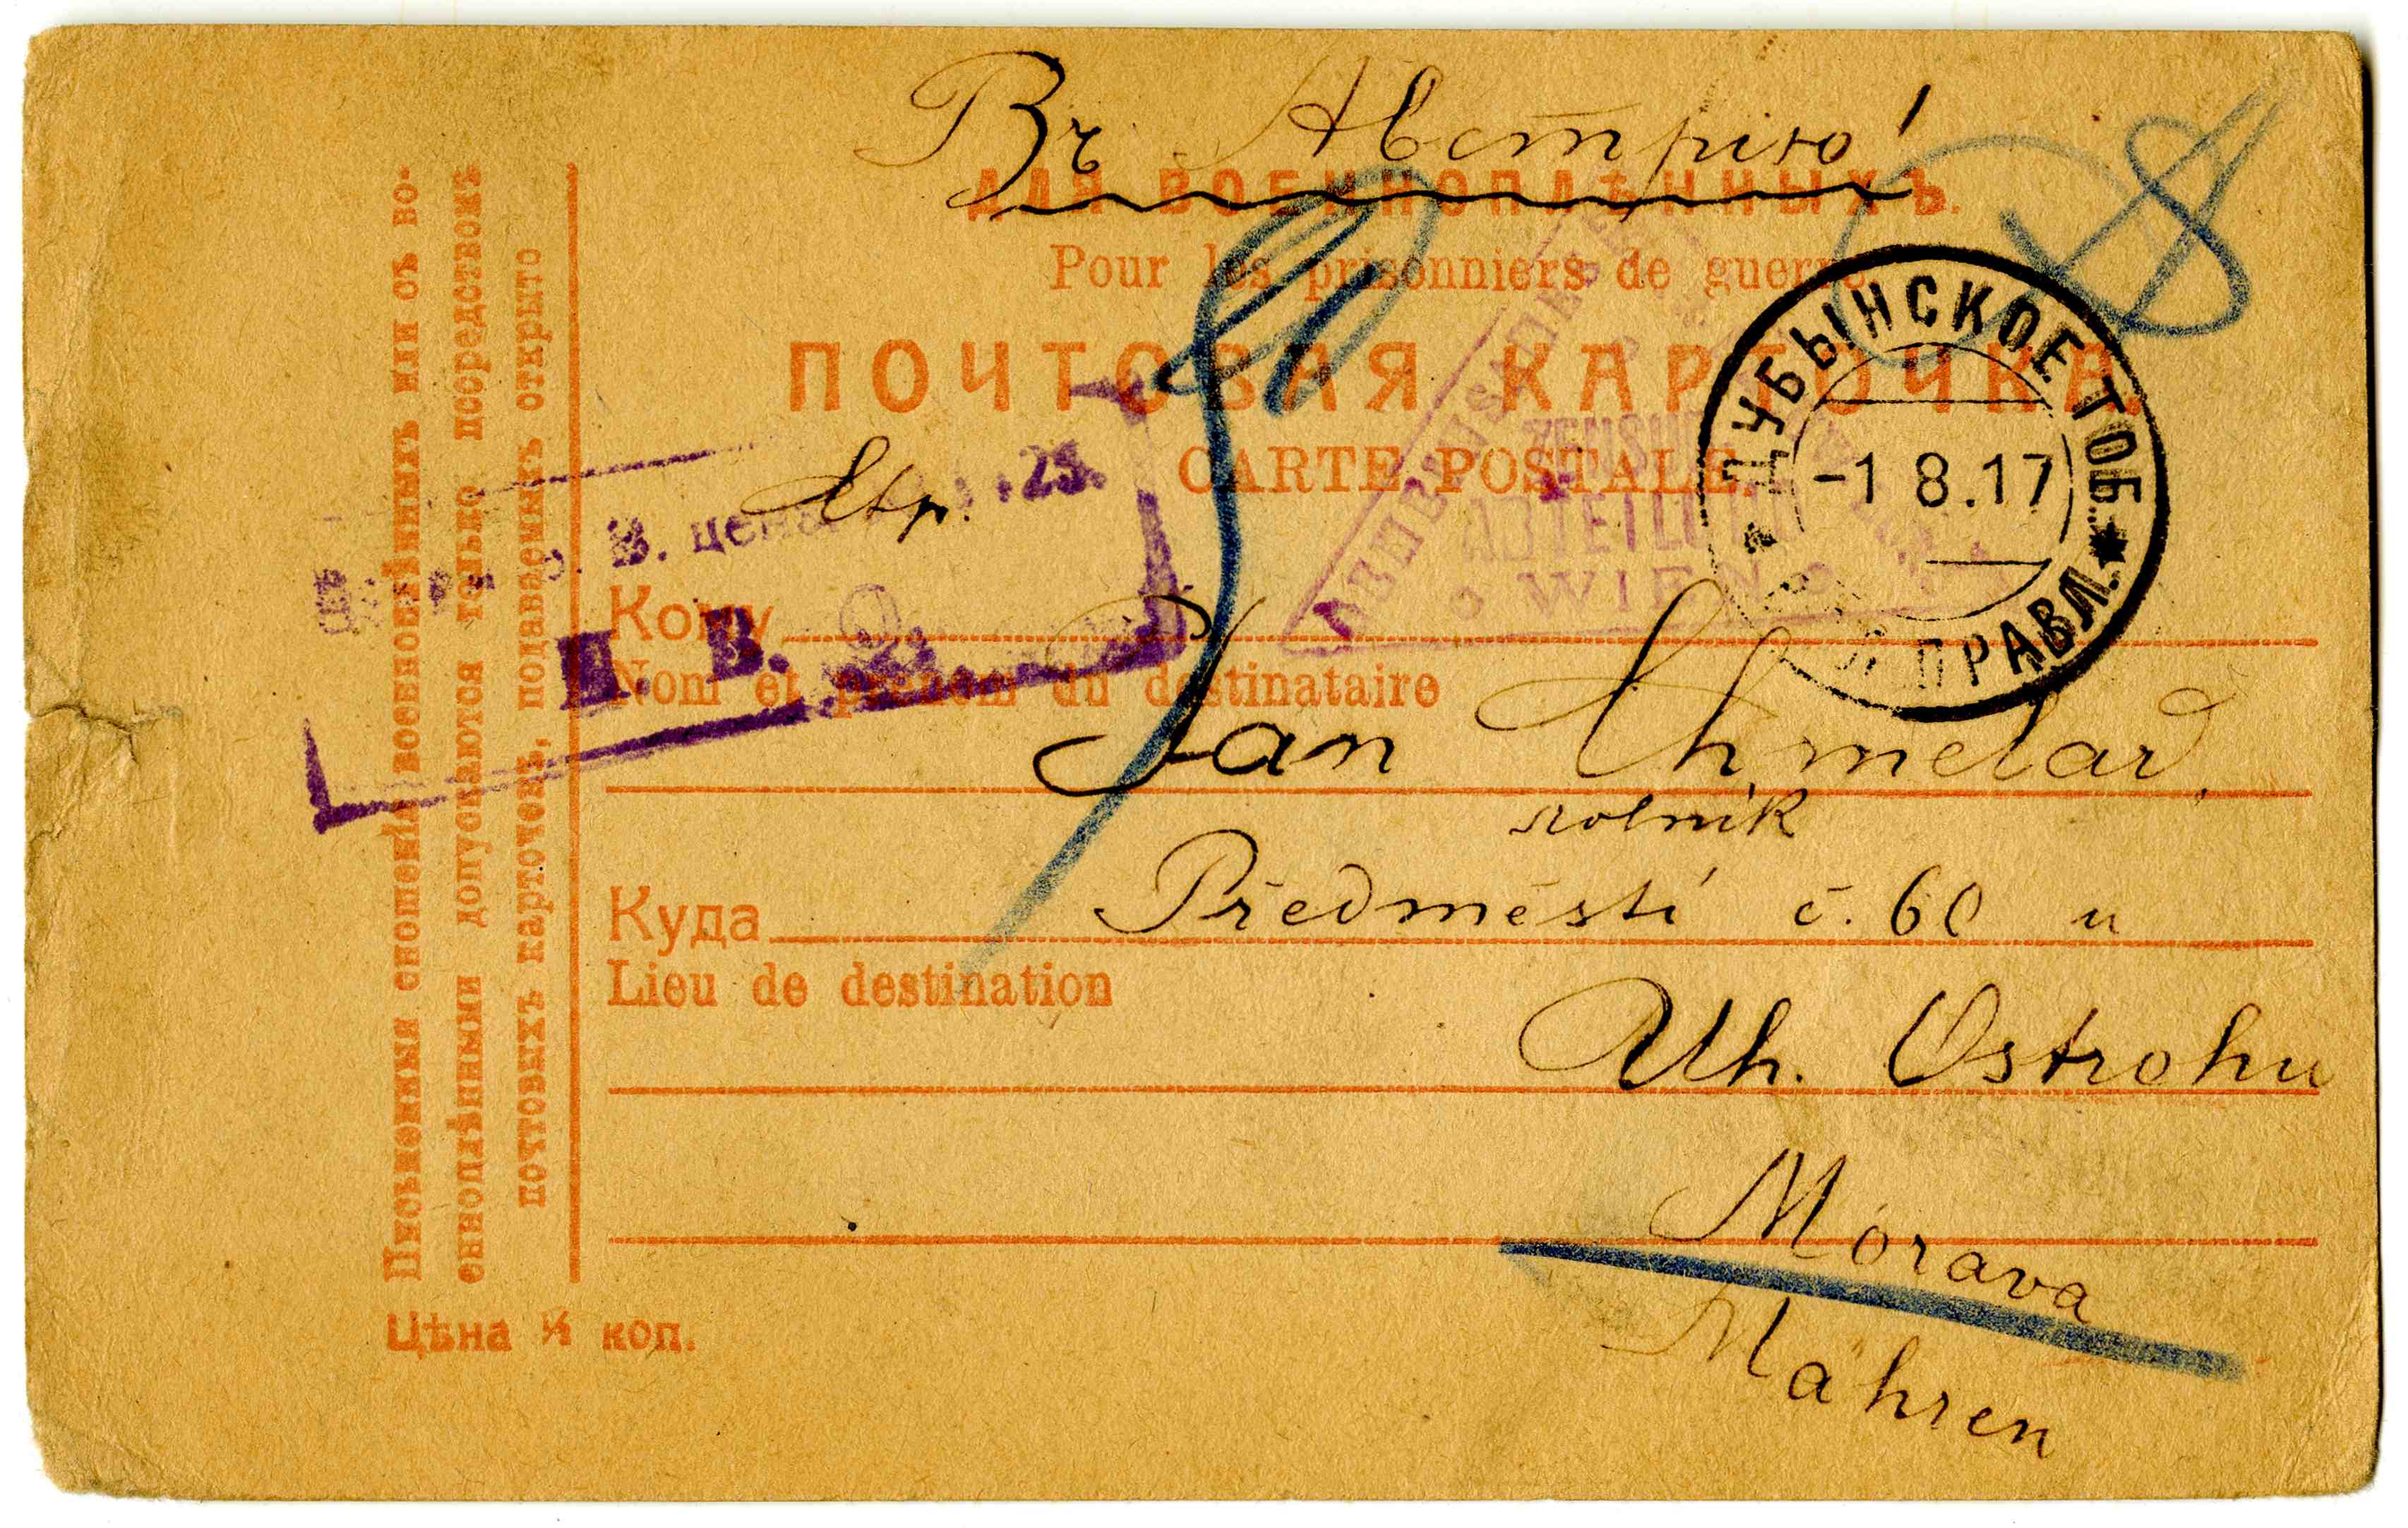 Въ Австрію!
ДЛЯ ВОЕННОПЛѢННЫХЪ.
Pour les prisonniers de guerre
ПОЧТОВАЯ КАРТОЧКА.
CARTE POSTALE.
ДУБЫНСКОЕ ТОБ.
-1 8.17
ПРАВЛ.
ZENSUR
ABTEILUNG
WIEN
В. цена
25.
П. В.
Кому
Nom et prénom du destinataire
Jan Chmelař,
rolník
Куда Předměstí č. 60 u
Lieu de destination
Uh. Ostrohu
Morava
Mähren
Письменныя сношенія военноплѣнныхъ или съ во-
енноплѣнными допускаются только посредствомъ
почтовыхъ карточекъ, подаваемыхъ открыто
Цѣна ½ коп.